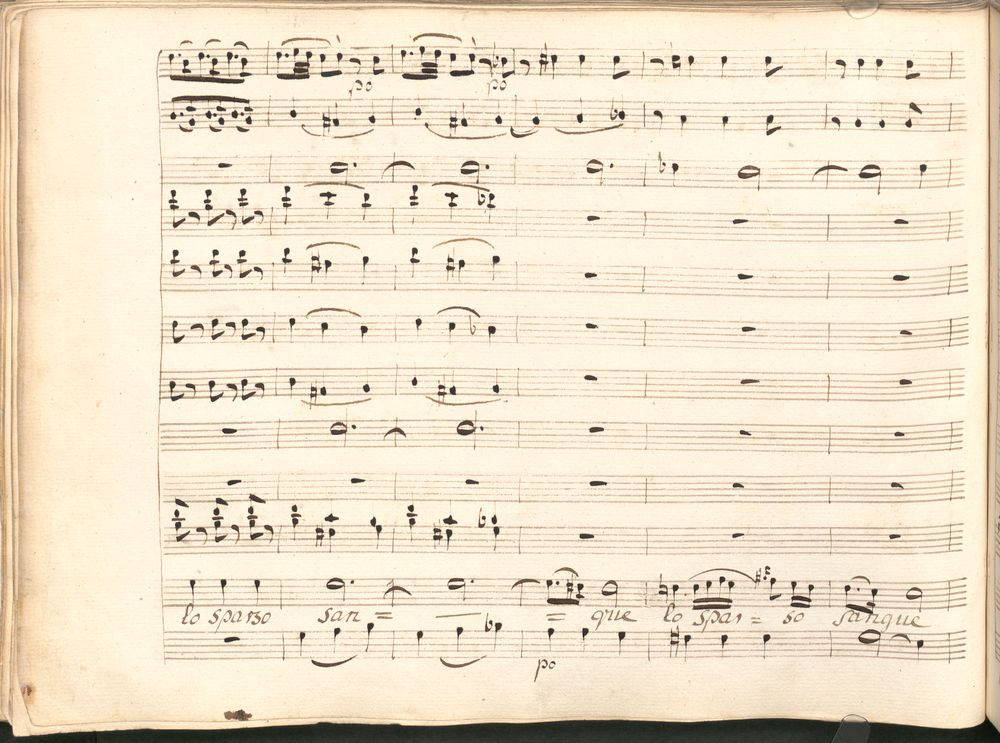 po po
lo sparso san = — = que lo spar = so sanque
po